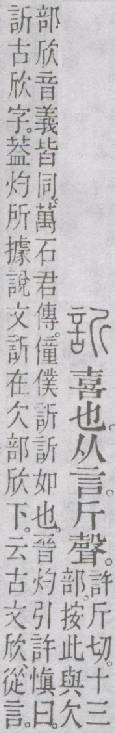 訢喜也。从言。斤聲。許斤切。十三
部。按此與欠
部欣音義皆同。萬石君傳。僮僕訢訢如也。晉灼引許愼曰。
訢古欣字。葢灼所據說文訢在欠部欣下。云古文欣從言。